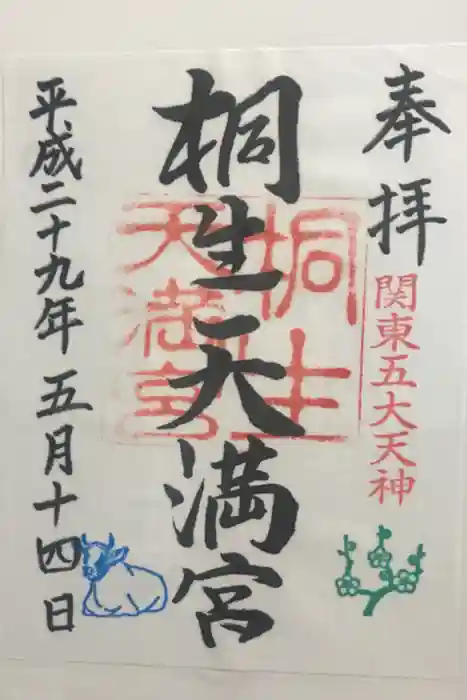 奉拝
関東五大天神
桐生天満宮
桐生
天満宮
平成二十九年五月十四日